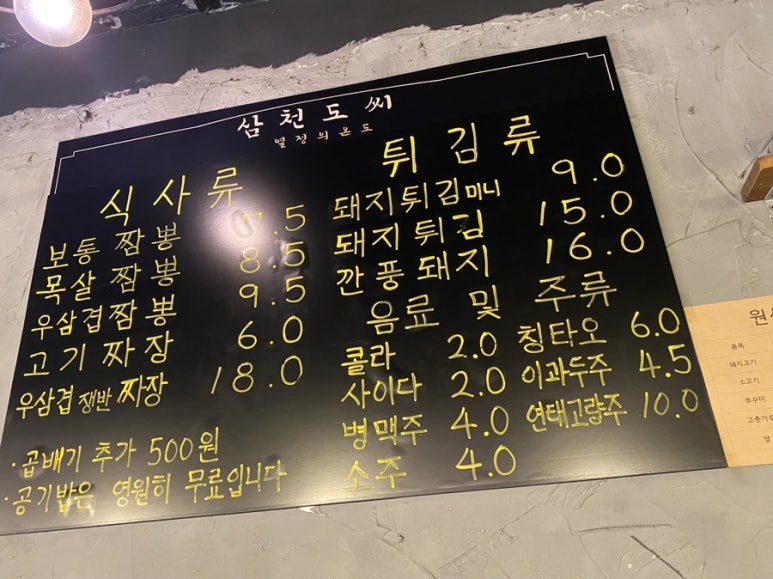 삼천도씨
열정의온도
식사류
보통짬뽕 7.5
목살짬뽕 8.5
우삼겹짬뽕 9.5
고기짜장 6.0
우삼겹쟁반짜장 18.0
· 곱배기 추가 500원
· 공기밥은 영원히 무료입니다
튀김류
돼지튀김미니 9.0
돼지튀김 15.0
깐풍돼지 16.0
음료 및 주류
콜라 2.0
사이다 2.0
병맥주 4.0
소주 4.0
칭타오 6.0
이과두주 4.5
연태고량주 10.0
품목
돼지고기
소고기
쭈꾸미
고춧가루
쌀